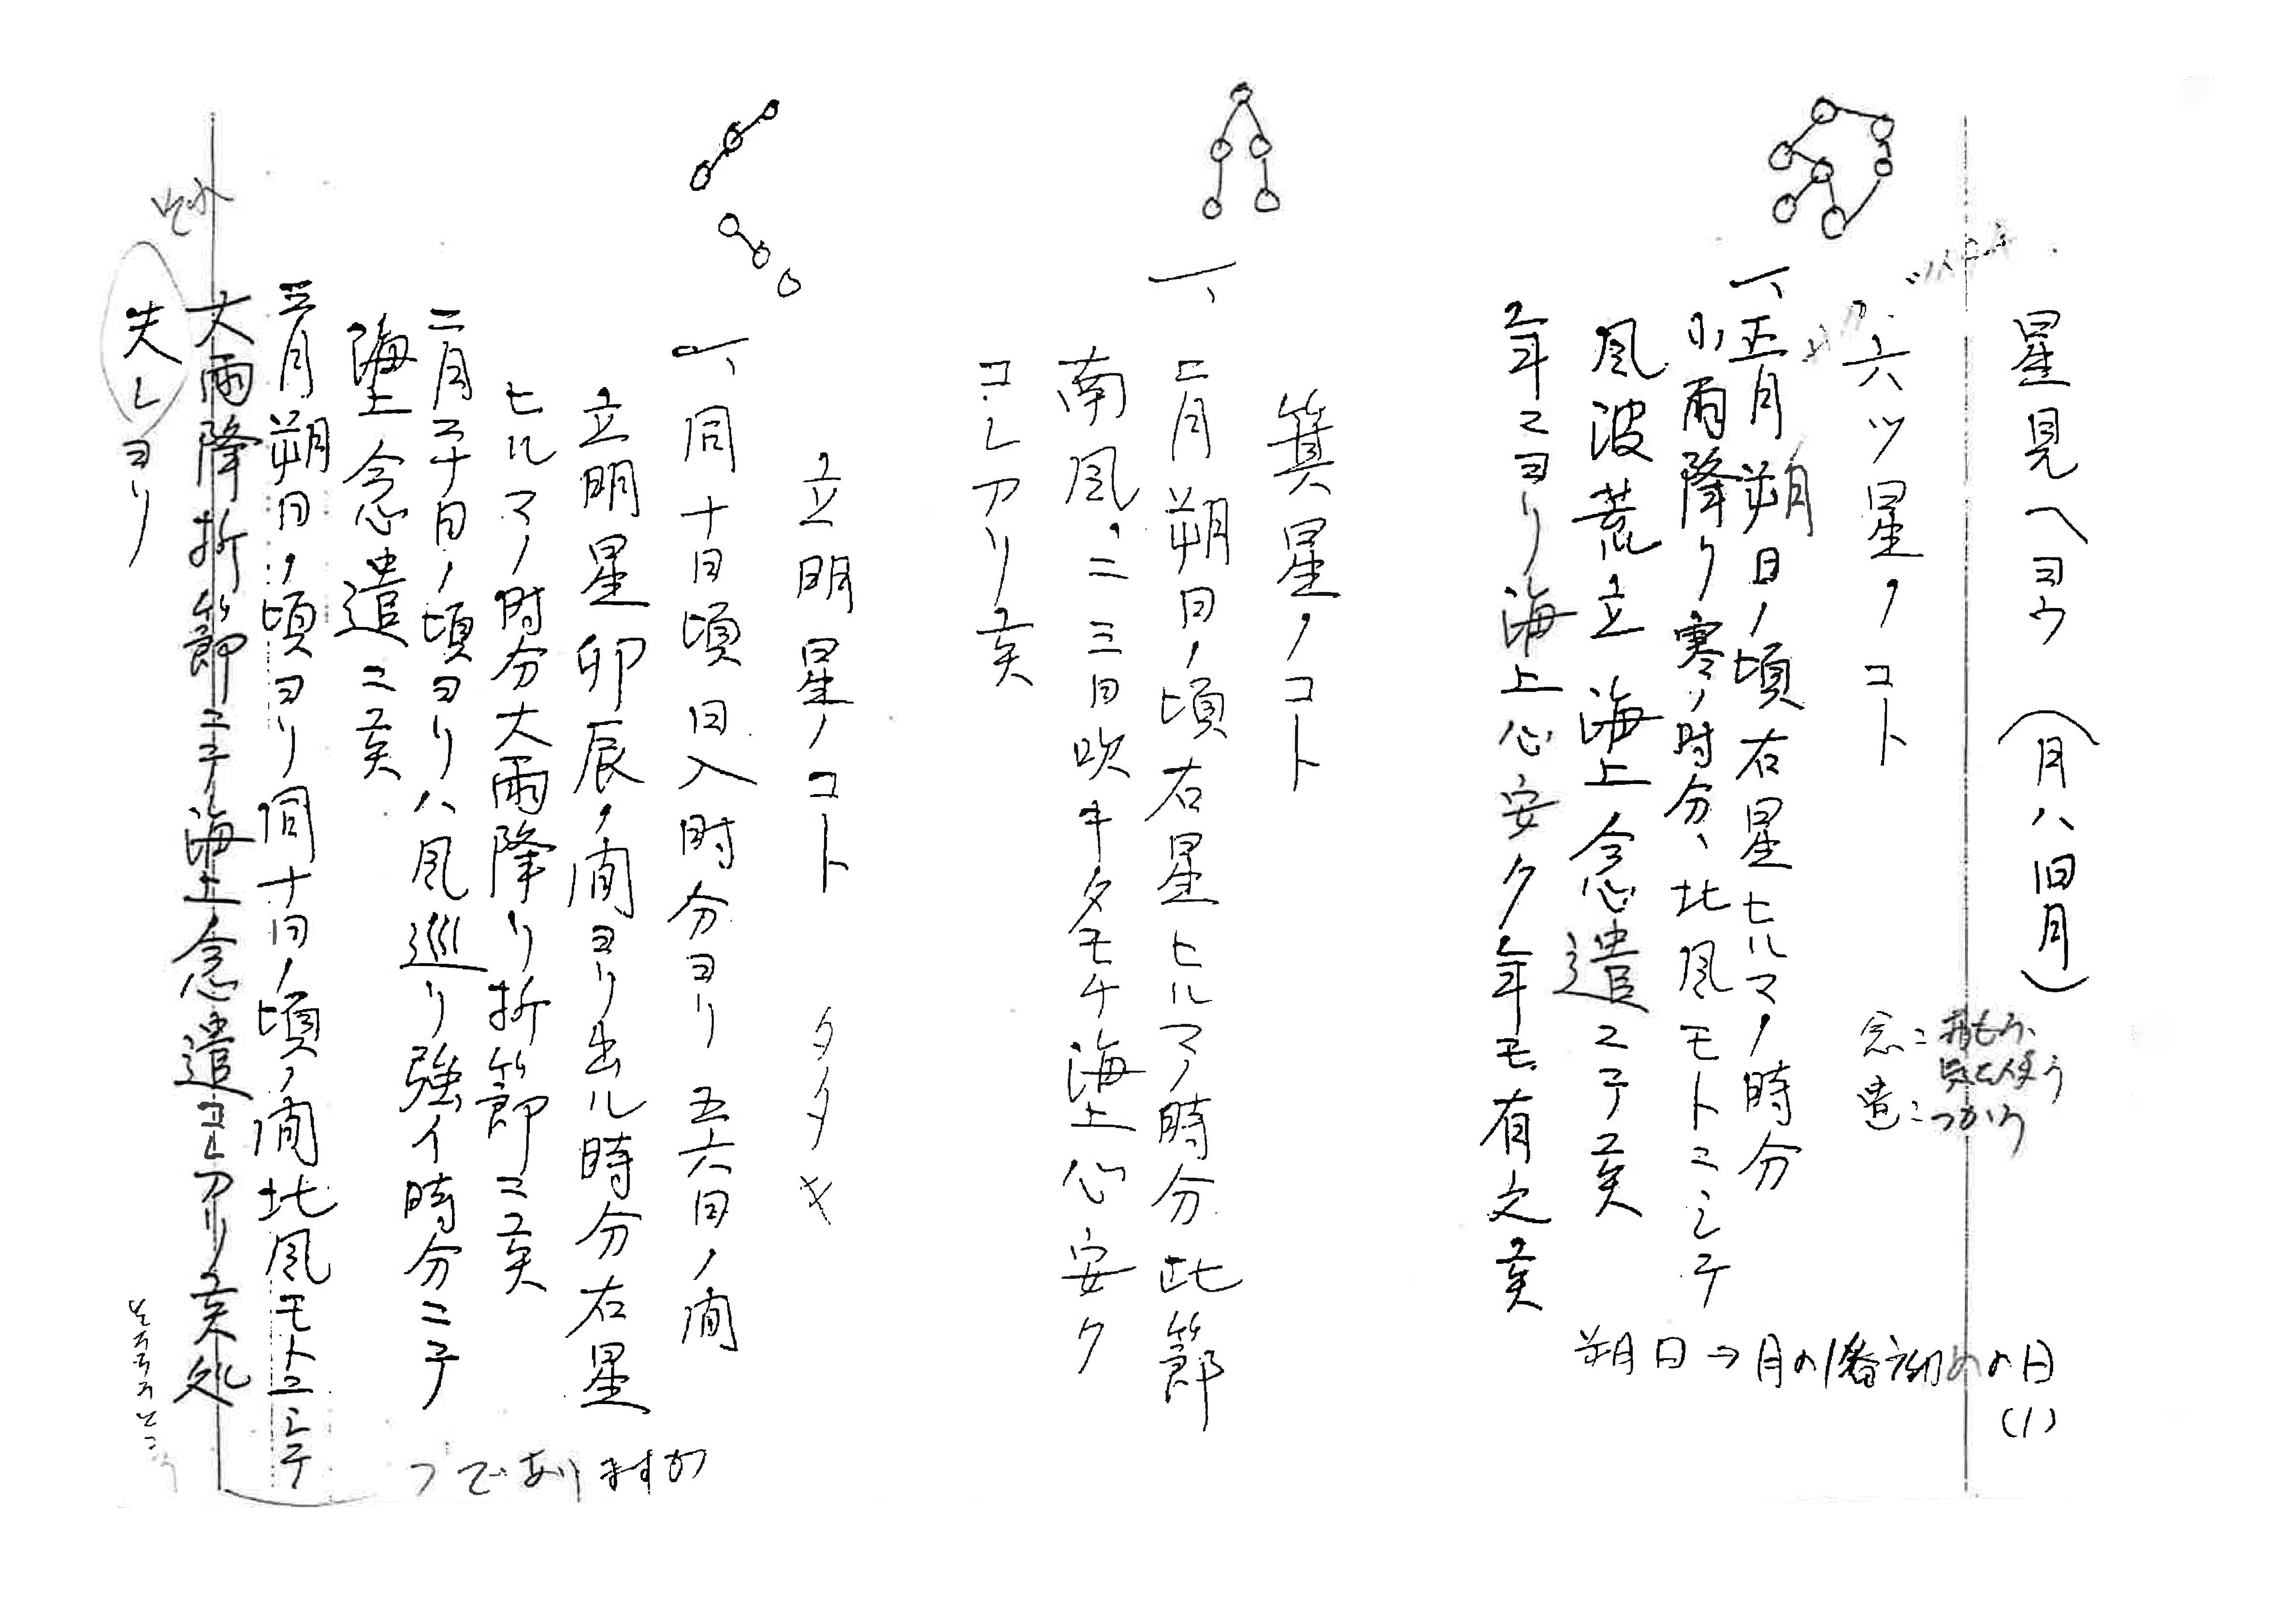 星見ヘヨウ （月ハ旧月）
念＝おもふ
遣＝つかう
六ッ星ノコト
一、正月朔日ノ頃右星ヒルマノ時分
小雨降リ寒ノ時分、北風モトニシテ
風波荒立海上念遣ニテ
年ニヨリ海上心安ク年モ有之
朔日→月の1番初めの日
(1)
箕星ノコト
一、二月朔日ノ頃右星ヒルマノ時分此節
南風、二三日吹キタモチ海上心安ク
コレアリ
立明星ノコト タタキ
一、同十日頃日入時分ヨリ五六日ノ間
立明星卯辰ノ間ヨリ出ル時分右星
ヒルマノ時分大雨降リ折節ニ
二月子日ノ頃ヨリハ風巡リ強イ時分ニテ
海上念遣ニ
三月朔日ノ頃ヨリ同十日ノ頃ノ間北風モトニシテ
大雨降折節ニテ海上念遣コレアリ
失レヨリ
つであります